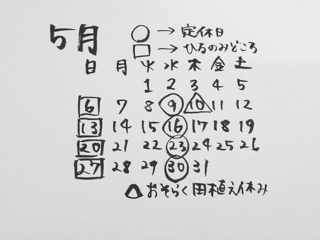 5月
○→定休日
□→ひるのみどころ
日 月 火 水 木 金 土
1 2 3 4 5
6 7 8 9 10 11 12
13 14 15 16 17 18 19
20 21 22 23 24 25 26
27 28 29 30 31
△おそらく田植え休み